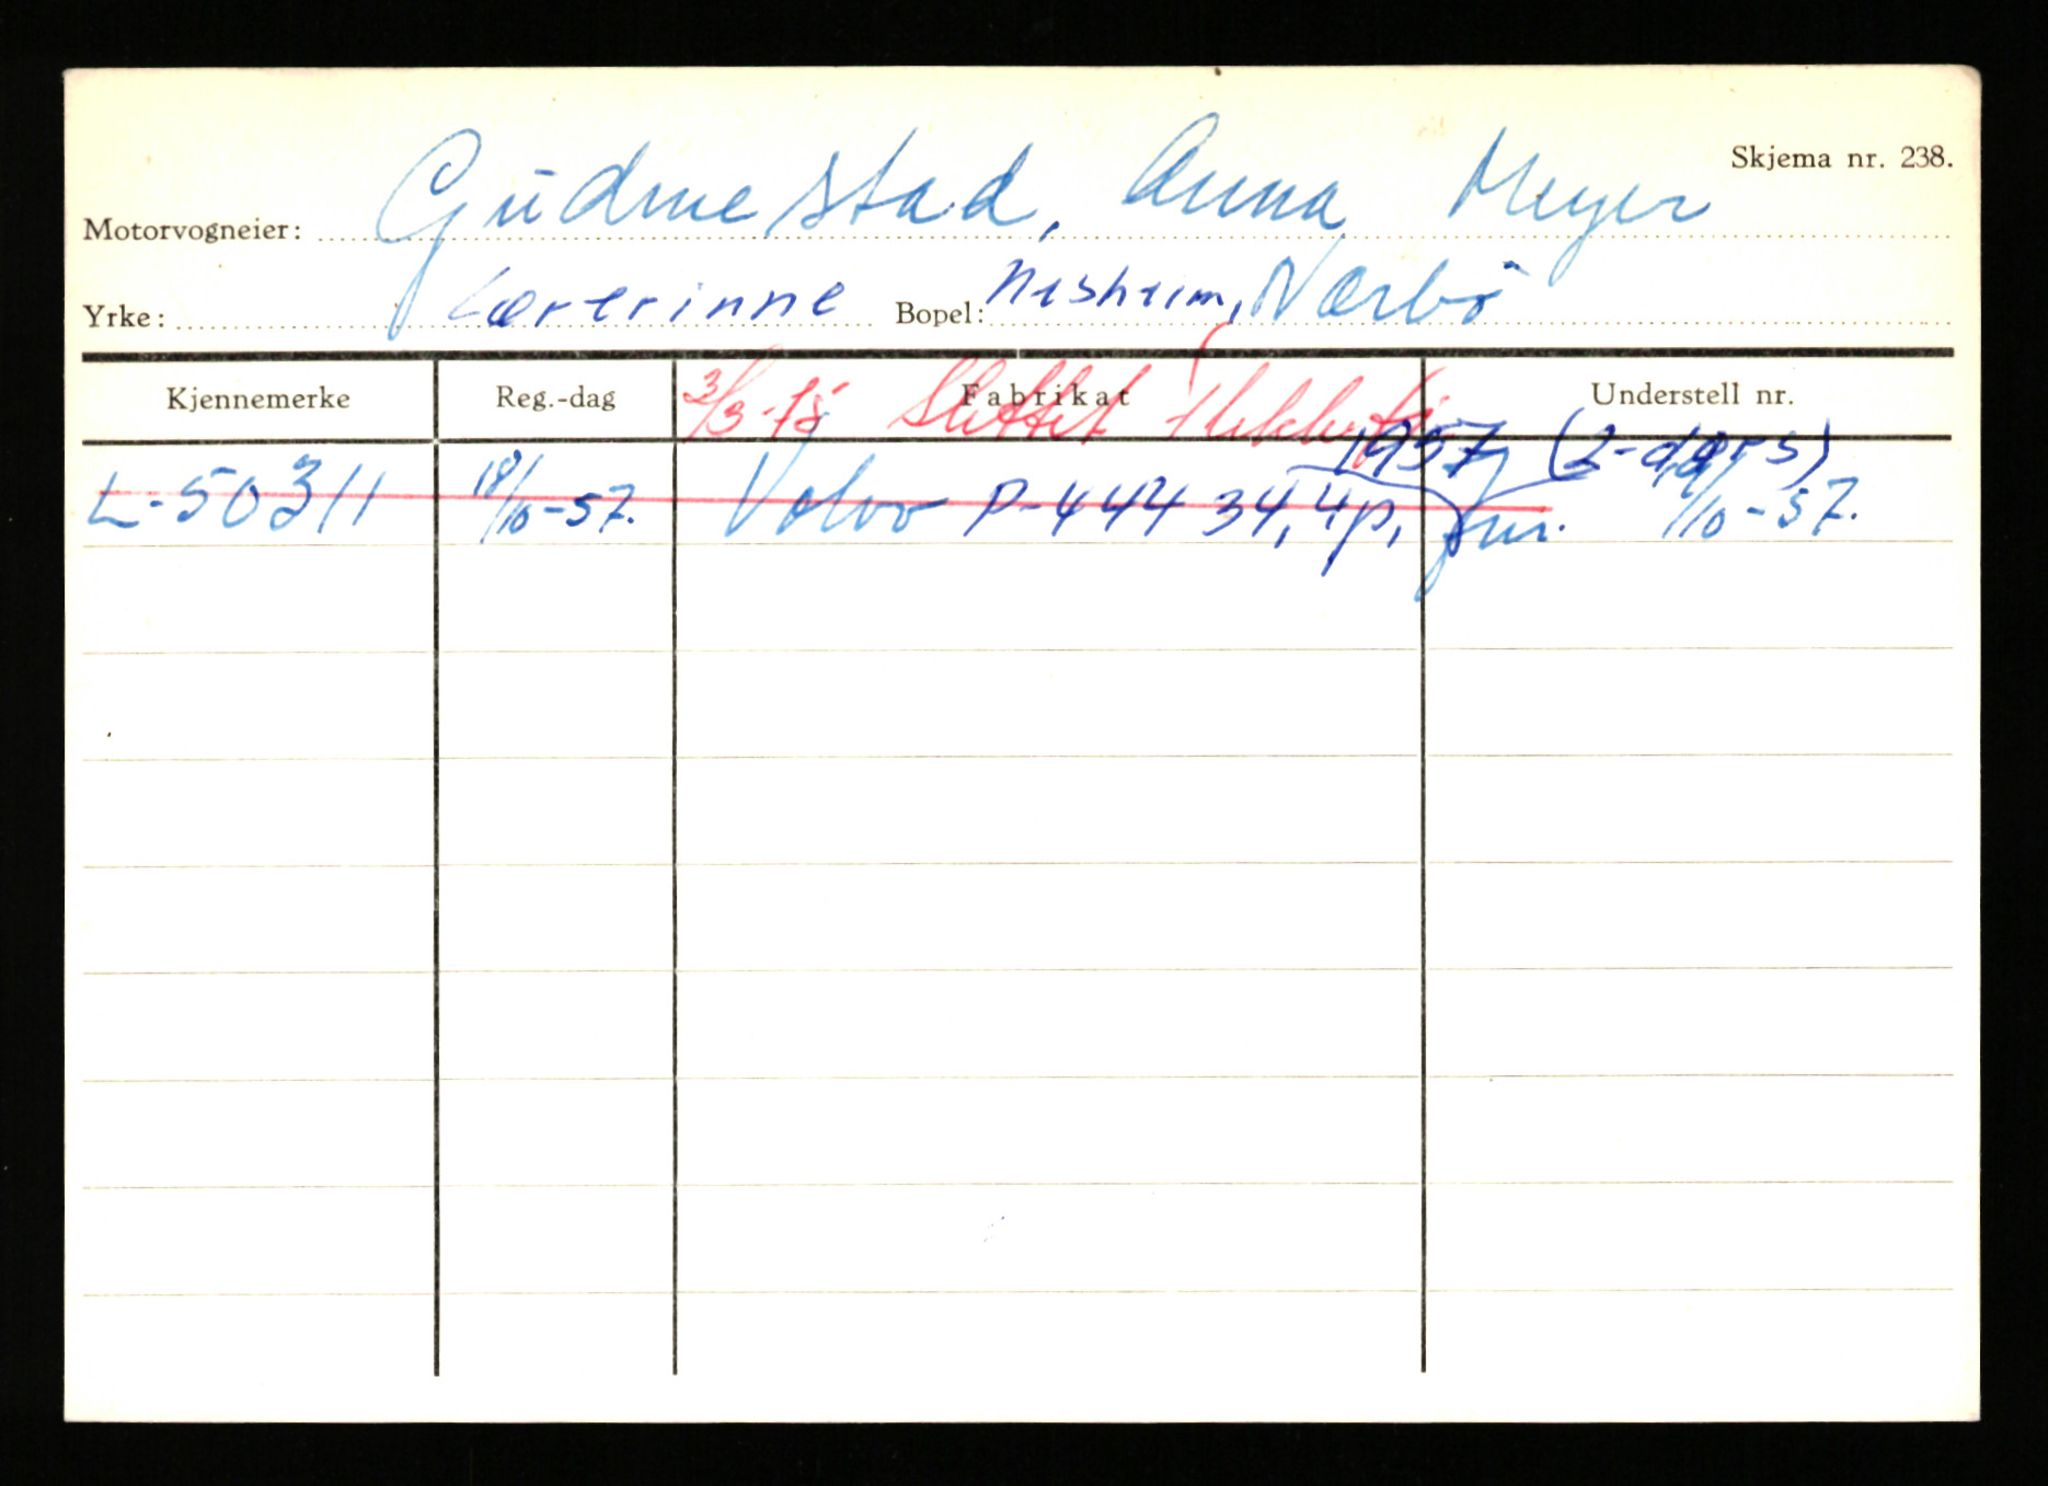 Skjema nr. 238.
Motorvogneier: Gudmestad, Anna Meyer
Yrke: Lærerinne Bopel: Nesheim, Nærbø
Kjennemerke Reg.-dag Fabrikat Understell nr.
3/3-75 Slettet
1957 (2-dørs)
L-50311 18/10-57. Volvo P-444 34, 4p, 18/10-57.